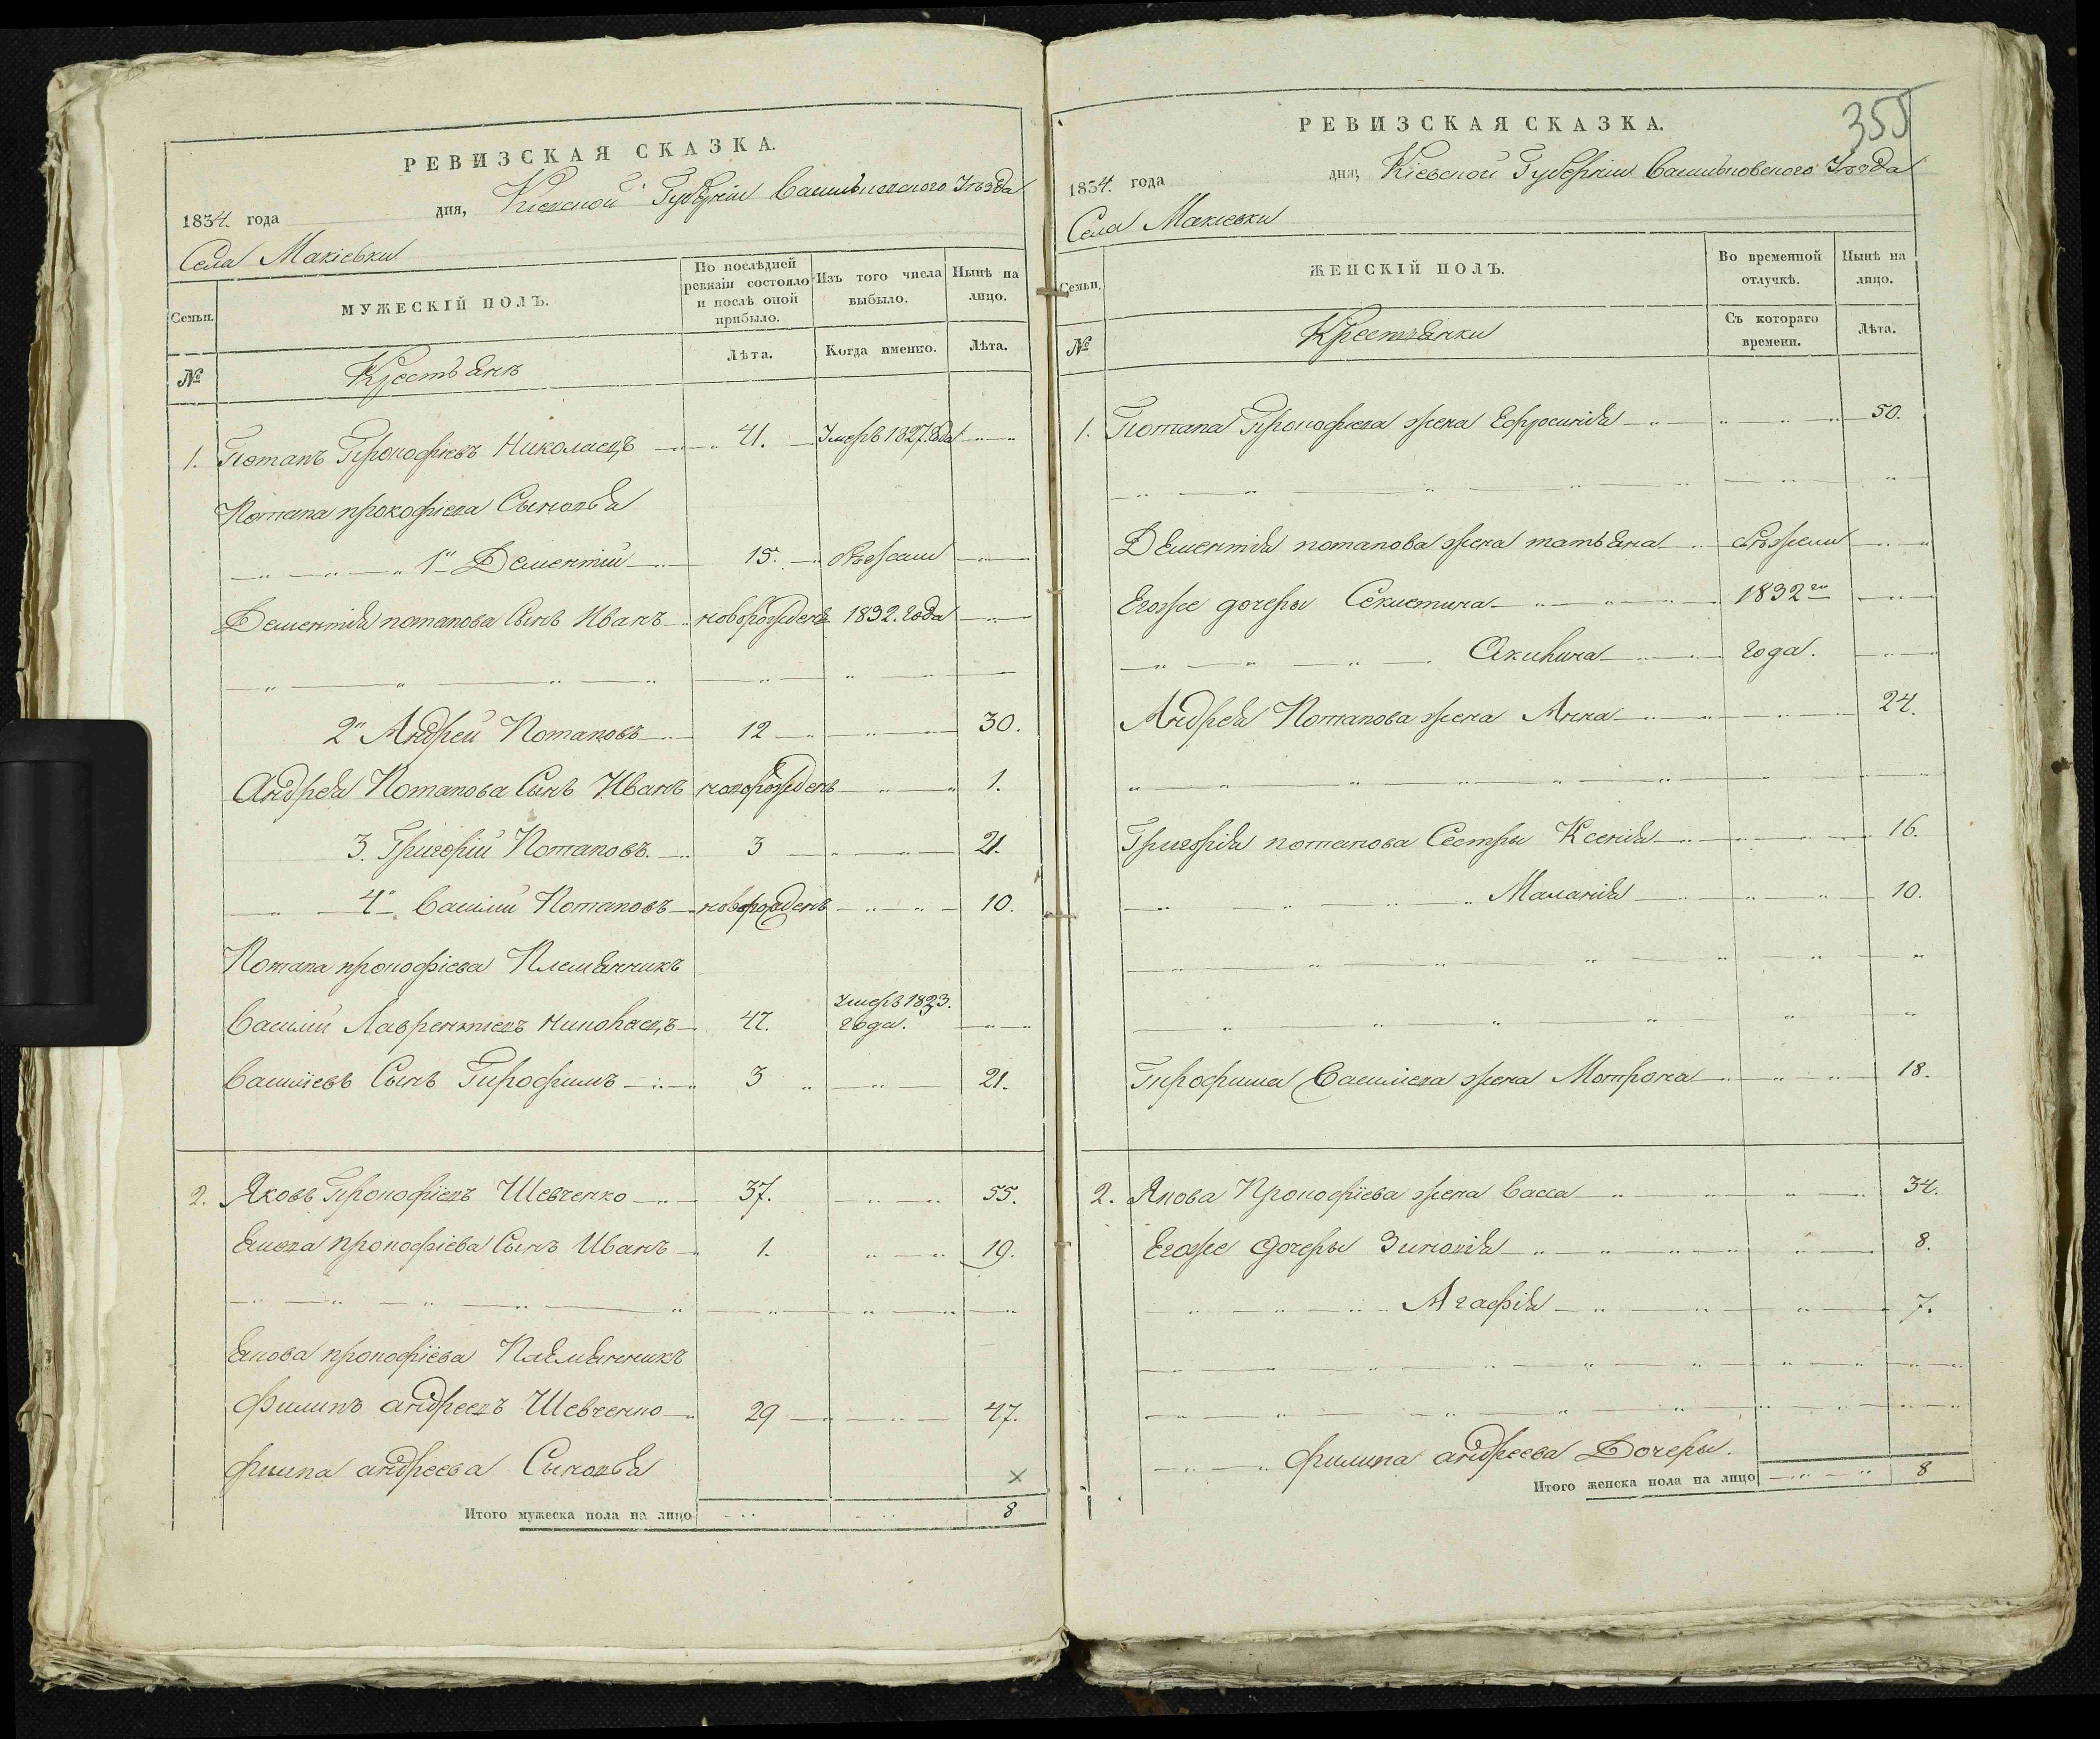 РЕВИЗСКАЯ СКАЗКА.
1834. года дня, Кіевской Губерніи Васильковского Уѣзда
Села Макіевки
Семьи.
МУЖЕСКІЙ ПОЛЪ.
По послѣдней ревизіи состояло и послѣ оной прибыло.
Изъ того числа выбыло.
Нынѣ на лицо.
№
Крестьянъ
Лѣта.
Когда именно.
Лѣта.
1. Потапъ Прокофіевъ Николаецъ 41. Умеръ 1827. года
Потапа прокофіева Сыновья
1й Дементій 15. бѣжали
Дементія потапова Сынъ Иванъ новорожденъ 1832. года
2й Андрей Потаповъ 12 30.
Андрея Потапова Сынъ Иванъ новорожденъ 1.
3. Григорій Потаповъ. 3 21.
4й Василій Потаповъ новорожденъ 10.
Потапа прокофіева Племянникъ
Василій Лаврентіевъ Николаецъ 47. Умеръ 1823. года.
Василіевъ Сынъ Трофимъ 3 21.
2. Яковъ Прокофіевъ Шевченко 37. 55.
Якова прокофіева Сынъ Иванъ 1. 19.
Якова прокофіева Племянникъ
Филипъ андреевъ Шевченко 29 47.
Филипа андреева Сыновья ×
Итого мужеска пола на лицо 8
355
РЕВИЗСКАЯ СКАЗКА.
1834. года дня, Кіевской Губерніи Васильковского Уѣзда
Села Макіевки
Семьи.
ЖЕНСКІЙ ПОЛЪ.
Во временной отлучкѣ.
Нынѣ на лицо.
№
Крестьянки
Съ котораго времени.
Лѣта.
1. Потапа Прокофіева жена Ефросинія 50.
Дементія потапова жена татьяна бѣжали
Егоже дочеры Секлетина 1832го
Акилина года.
Андрея Потапова жена Анна 24.
Григорія потапова Сестры Ксенія 16.
Маланія 10.
Трофима Василіева жена Мотрона 18.
2. Якова Прокофіева жена Васса 34.
Егоже дочеры Зиновія 8.
Агафія 7.
Филипа андреева Дочеры.
Итого женска пола на лицо 8